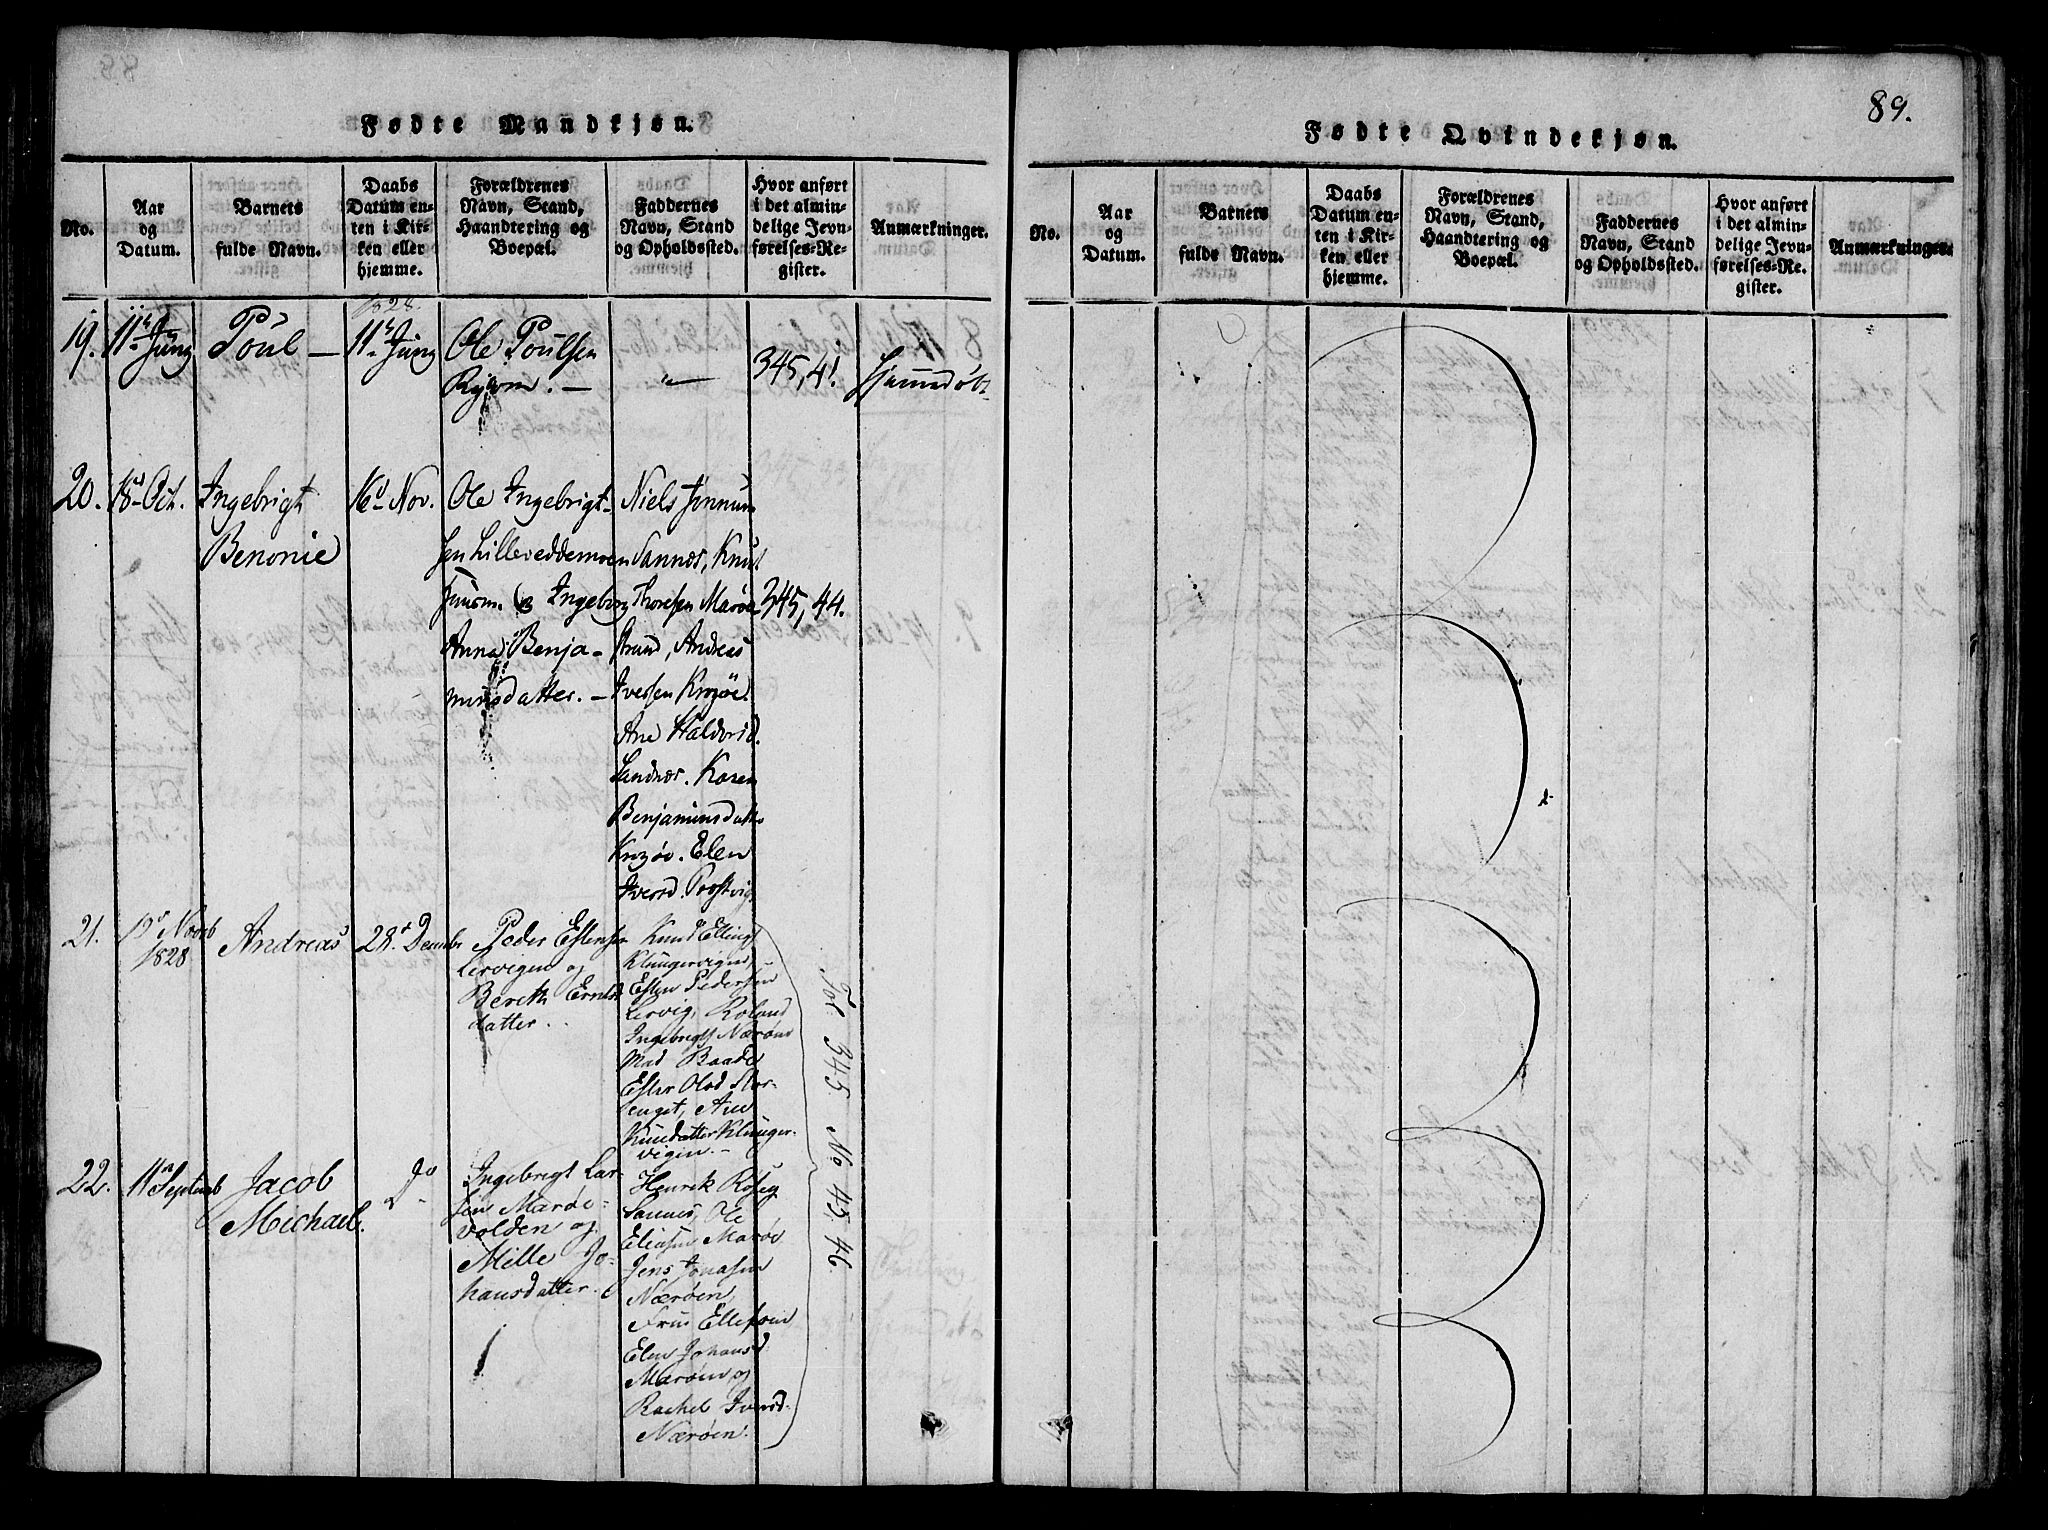 Fødte Mandkjøn.
No.
Aar
og
Datum.
Barnets
fulde Navn.
Daabs
Datum en-
ten i Kir-
ken eller
hjemme.
Forældrenes
Navn, Stand,
Haandtering og
Boepæl.
Faddernes
Navn, Stand
og Opholdssted.
Hvor anført
i det almin-
delige Jevn-
førelses-Re-
gister.
Anmærkninger.
1828.
19.
Poul —
Ole Poulsen
—
345, 41.
Hjemmedøbt
20.
18d Oct.
Ingebrigt
Benonie
16d Nov.
Ole Ingebrigt-
sen Lilleveddemoen
Ingeborg
Anna Benja-
minsdatter. —
Niels
Sannes, Knut
Thoresen Marøe
Strand, Andreas
Iversen
Ane Haldorsd.
Sandnes. Karen
Benjaminsdatter
Elen
Iversd.
345, 44.
21.
1828
Andreas
28d Decembr
Peder Eslensen
Lervigen og
Bereth
datter.
Knud Ellings
Klungervigen,
Eslen Pedersen
Lervig, Roland
Ingebrigts Nærøen
Mad Baade
Ester Olsd Mar-
enget, Ane
Knudatter Klunger-
vigen. —
Fol 345 No 45. 46
22.
11te Septemb
Jacob
Michael.
Do
Ingebrigt Lar-
sen Marøe-
volden og
Mille Jo-
hansdatter.
Henrik
Sannes, Ole
Eliasen Marøe
Jens Jonasen
Nærøen,
Elen Johansd
Marøen, og
Rachel Iversd.
Nærøen.
89.
Fødte Qvindekjøn.
No.
Aar
og
Datum.
Barnets
fulde Navn.
Daabs
Datum en-
ten i Kir-
ken eller
hjemme.
Forældrenes
Navn, Stand,
Haandtering og
Boepæl.
Faddernes
Navn, Stand
og Opholdssted.
Hvor anført
i det almin-
delige Jevn-
førelses-Re-
gister.
Anmærkninger.